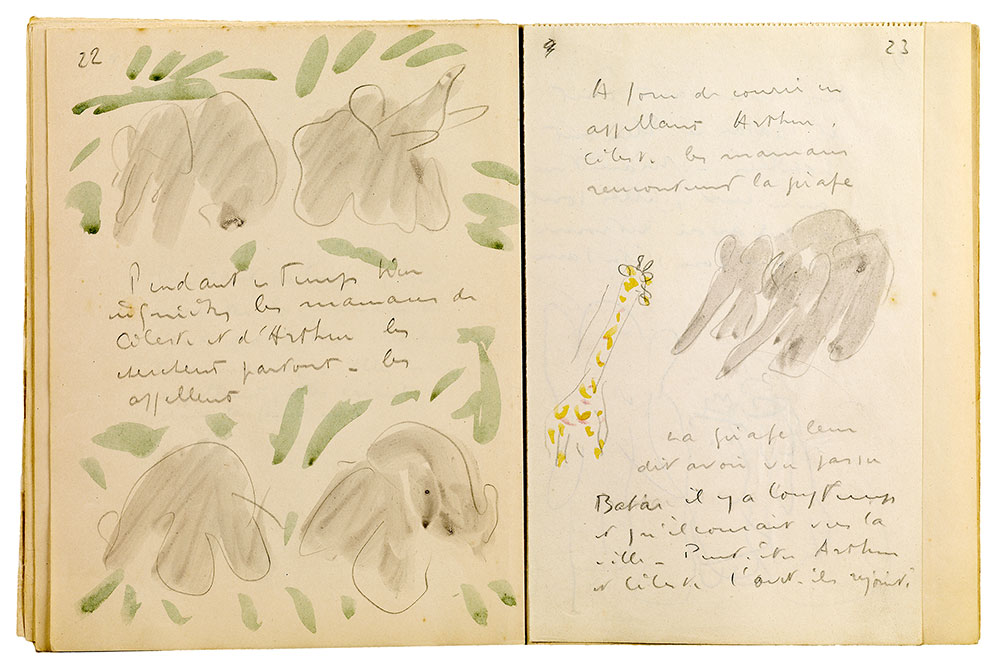 22
Pendant ce temps bien
inquiètes les mamans de
Céleste et d'Arthur les
cherchent partout - les
appellent
23
A force de courir en
appellant Arthur,
Céleste les mamans
rencontrent la girafe
La girafe leur
dit avoir vu passer
Babar il y a longtemps
et qu'il courait vers la
ville - Peut-être Arthur
et Céleste l'ont-ils rejoint.